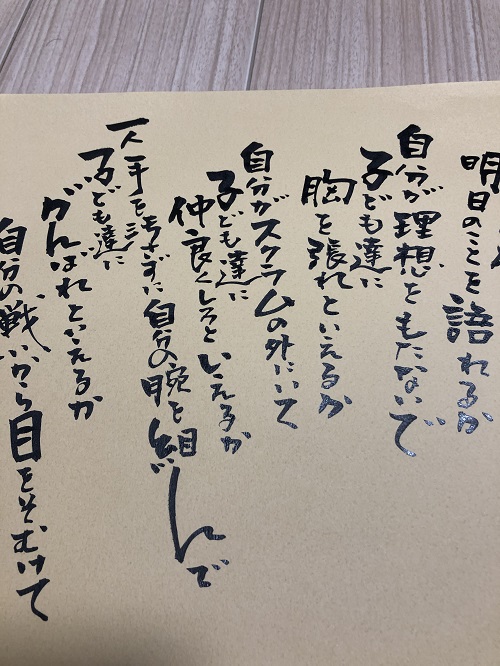 明日のことを語れるか
自分が理想をもたないで
子ども達に
胸を張れといえるか
自分がスクラムの外にいて
子ども達に
仲良くしろといえるか
一人手を汚さずに自分の腕を組んで
子ども達に
がんばれといえるか
自分の戦いから目をそむけて